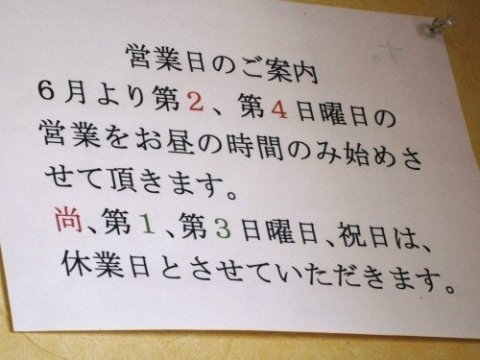 営業日のご案内
6月より第2、第4日曜日の
営業をお昼の時間のみ始めさ
せて頂きます。
尚、第1、第3日曜日、祝日は、
休業日とさせていただきます。